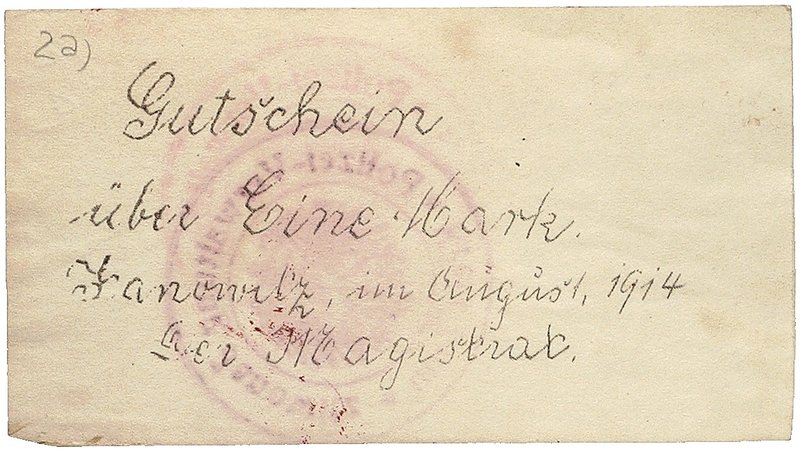 2a)
Gutschein
über Eine Mark.
Janowitz, im August, 1914
Der Magistrat.